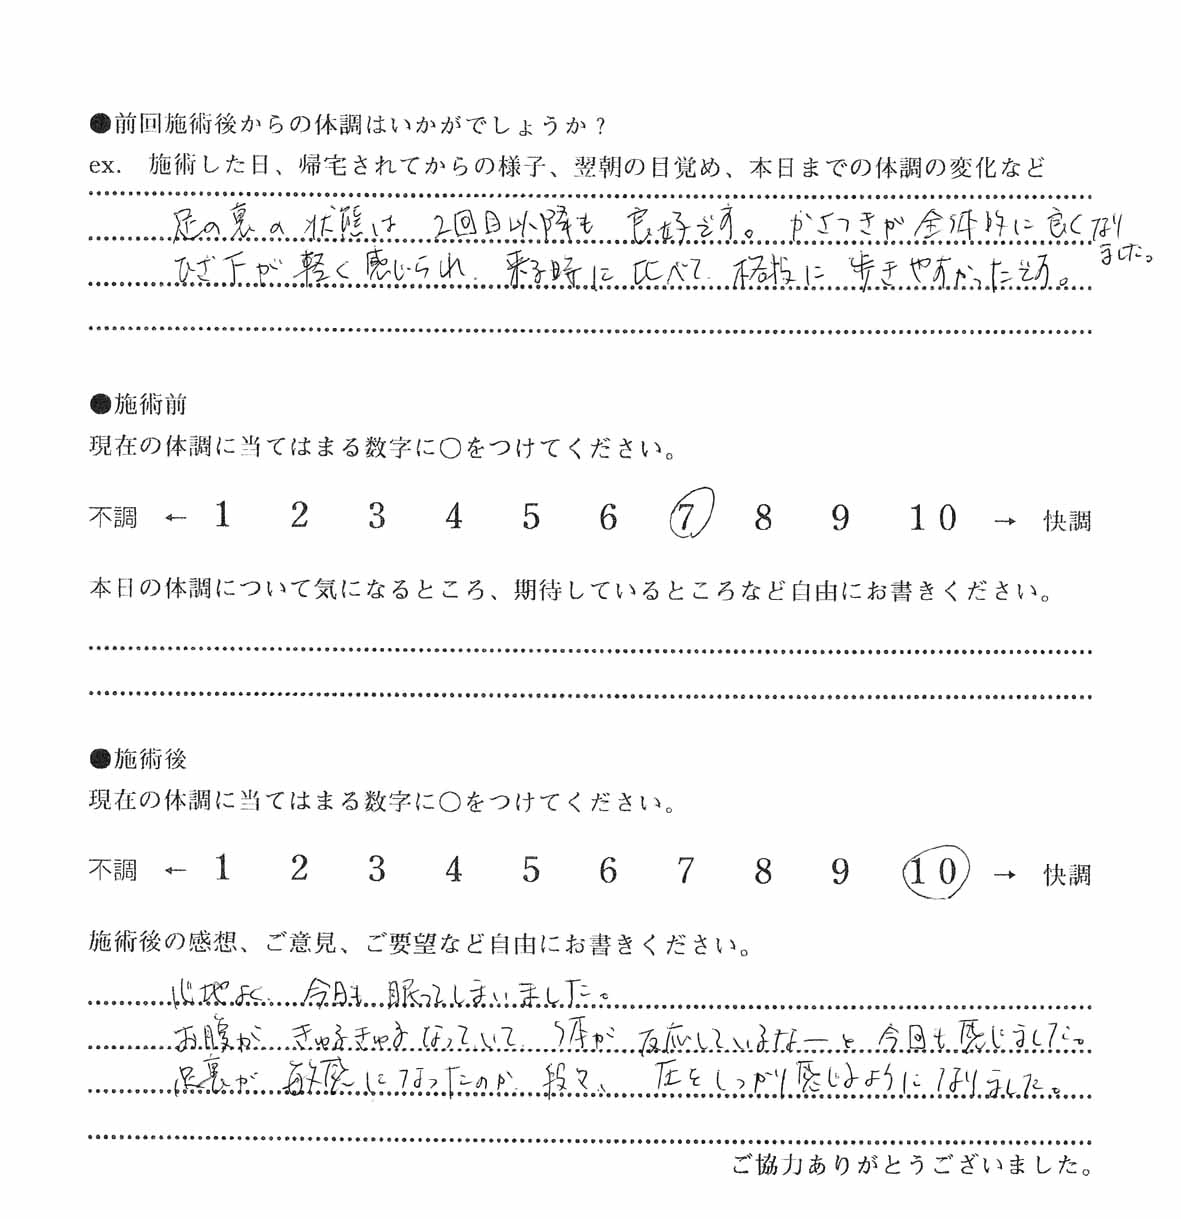 ●前回施術後からの体調はいかがでしょうか？
ex. 施術した日、帰宅されてからの様子、翌朝の目覚め、本日までの体調の変化など
足の裏の状態は 2回目以降も 良好です。かさつきが全体的に良くなり
ました。
ひざ下が軽く感じられ、来る時に比べて、格段に歩きやすかったです。
●施術前
現在の体調に当てはまる数字に○をつけてください。
不調 ← 1 2 3 4 5 6 7 8 9 10 → 快調
本日の体調について気になるところ、期待しているところなど自由にお書きください。
●施術後
現在の体調に当てはまる数字に○をつけてください。
不調 ← 1 2 3 4 5 6 7 8 9 10 → 快調
施術後の感想、ご意見、ご要望など自由にお書きください。
心地よく、今日も眠ってしまいました。
お腹が きゅるきゅるなっていて、体が 反応しているなーと 今回も感じました。
足裏が 敏感になったのか、段々、圧をしっかり感じるようになりました。
ご協力ありがとうございました。